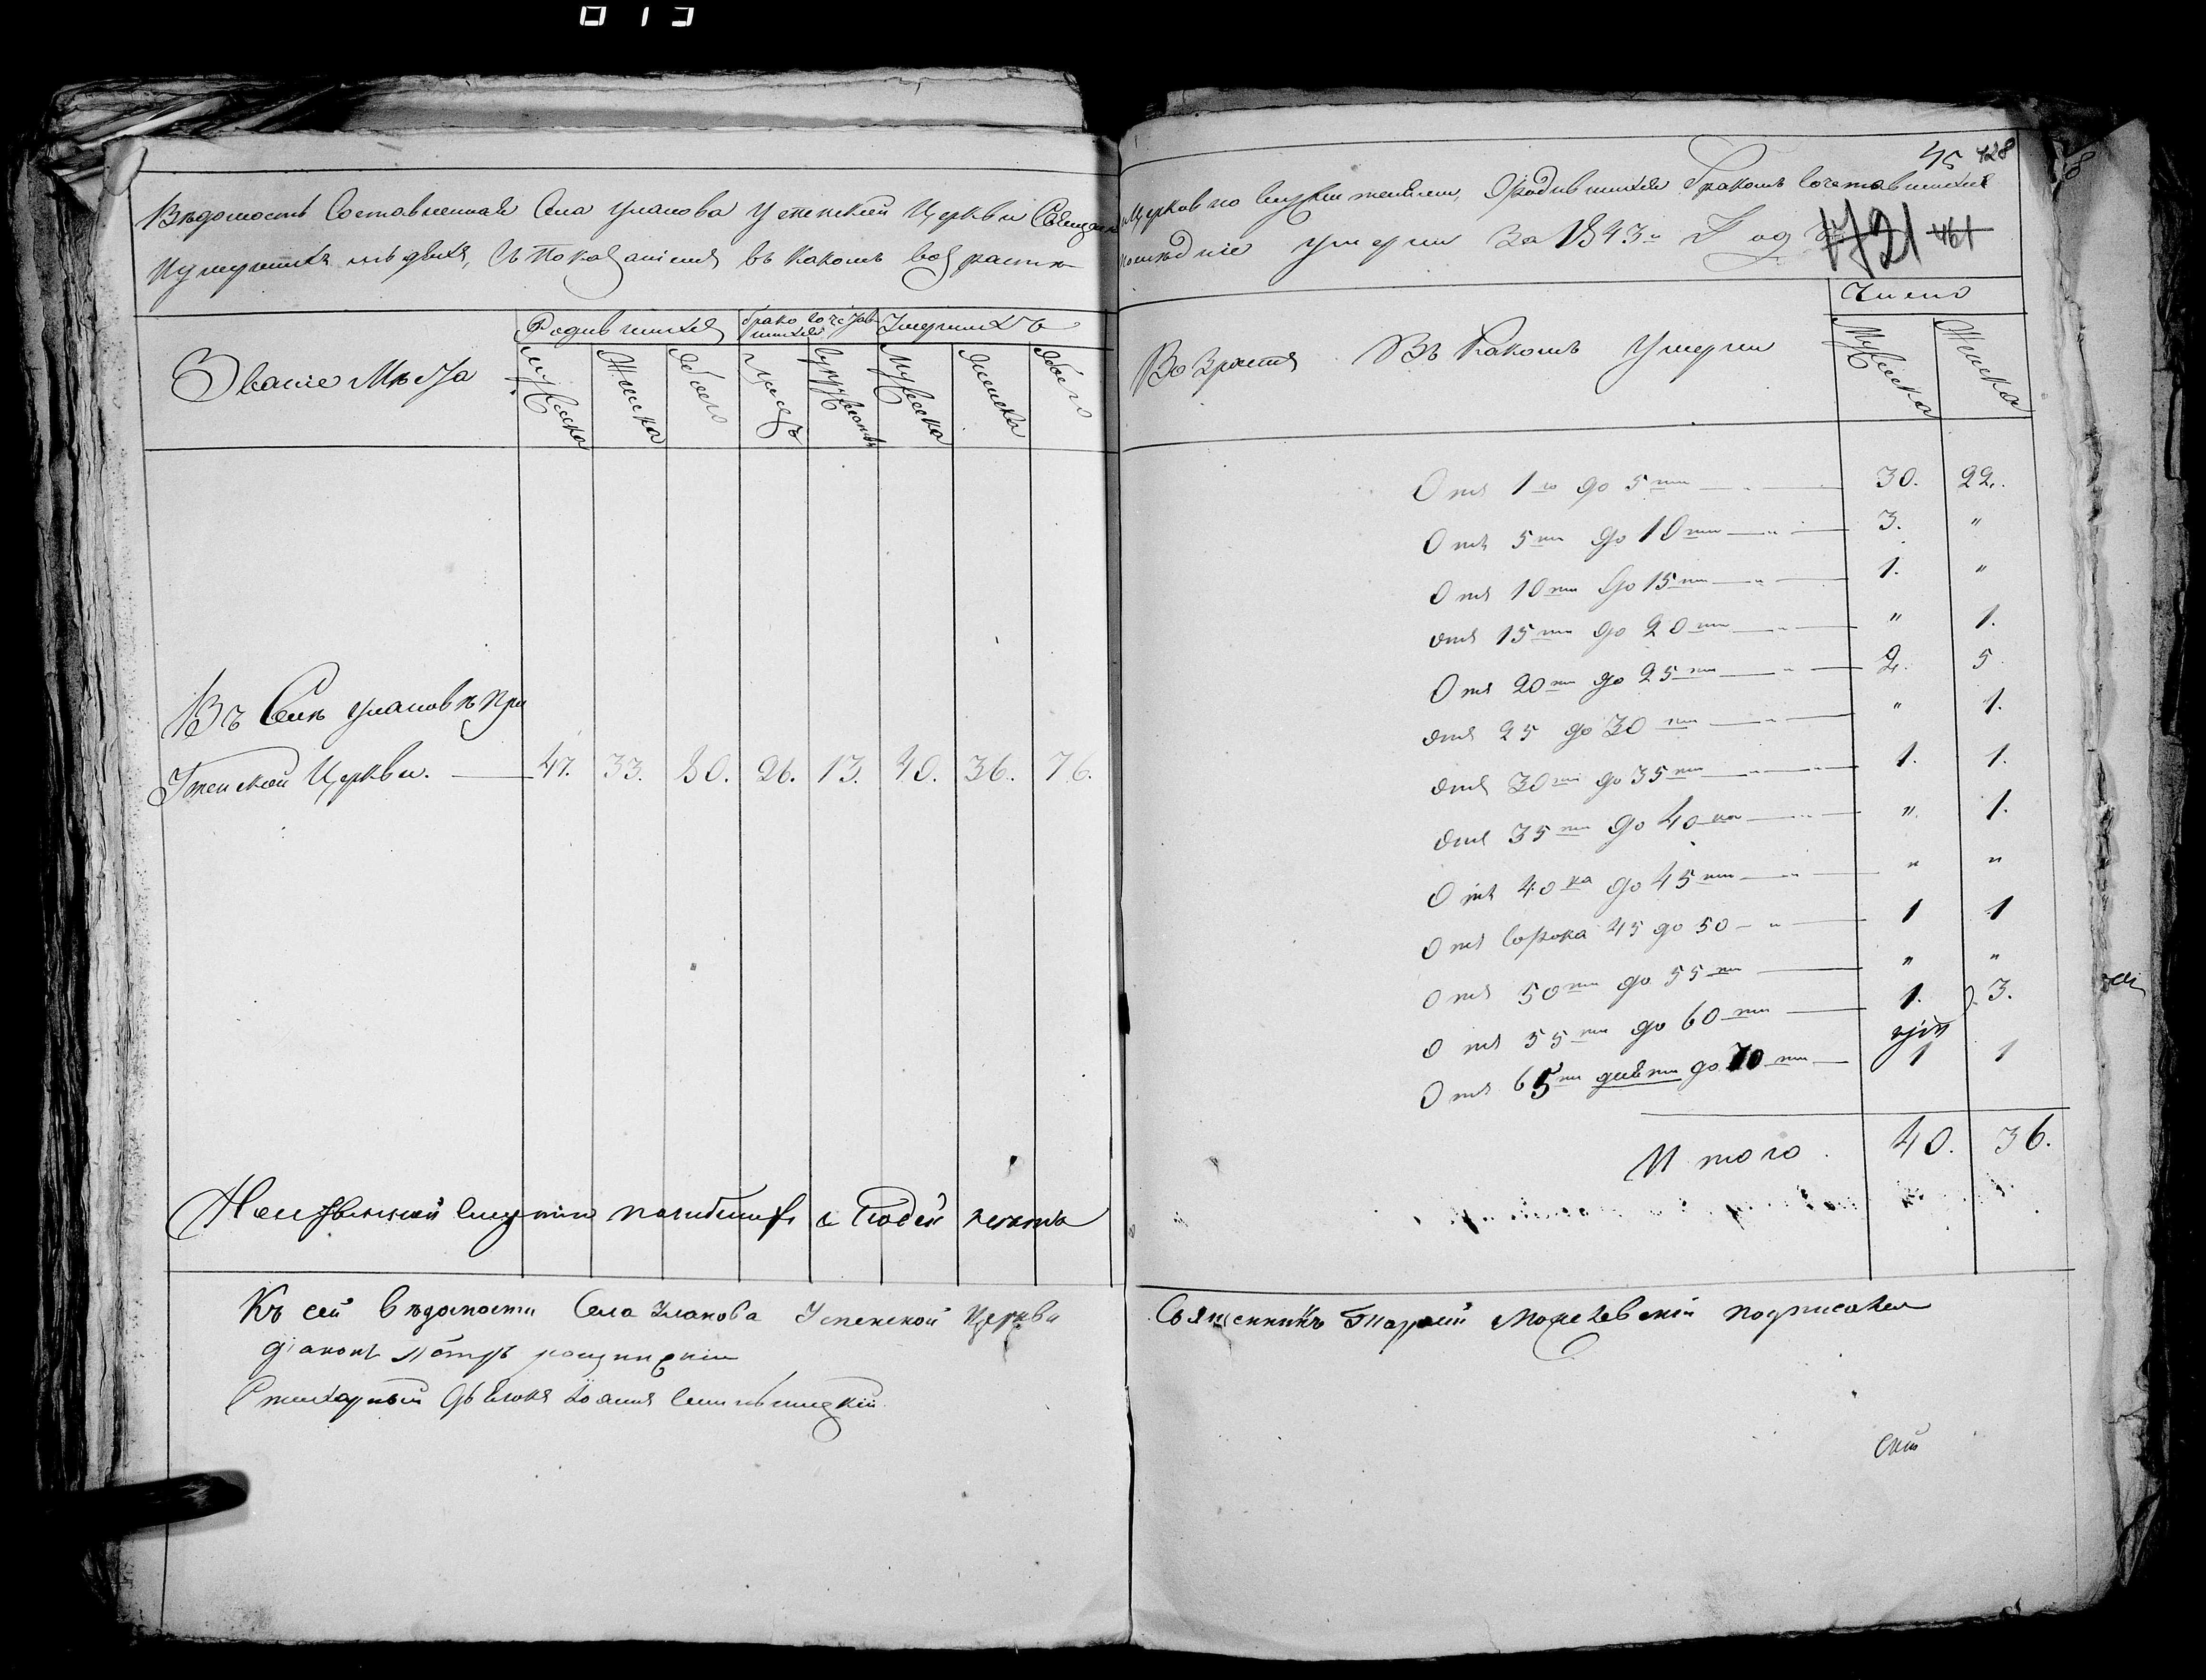 45 428
Вѣдомость Составленная Села Уланова Успенской Церкви Священно
Церковно служителями, Ородившихся бракомъ Сочетавшихся
Иумершихъ людяхъ, съ показаніемъ въ какомъ возрастѣ
послѣдніе умерли За 1843й Годъ
721 461
Званіе Мѣста
Родившихся
брако сочетав
шихся
Умершихъ
мужеска
Женска
Обоего
супружествъ
Мужеска
Женска
Обоего
Возрастъ Въ Какомъ Умерли
Число
Мужеска
Женска
Въ Селѣ Улановѣ При
Успенской Церкви. 47. 33. 80. 26. 13. 40. 36. 76.
Отъ 1го до 5ти 30. 22.
Отъ 5ти до 10ти 3. "
Отъ 10ти до 15ти 1. "
Отъ 15ти до 20ти " 1.
Отъ 20ти до 25ти 2. 5.
Отъ 25 до 30ти " 1.
Отъ 30ти до 35ти 1. 1.
Отъ 35ти до 40ка " 1.
Отъ 40ка до 45ти " "
Отъ Сорока 45 до 50 1 1
Отъ 50ти до 55ти " "
Отъ 55ти до 60ти 1. 3.
Отъ 65ти до 70ти 1 1
Итого. 40. 36.
случаю погибшихъ людей
Къ сей вѣдомости Села Уланова Успенской Церкви
Священникъ подписался
діаконъ Петръ
Стихарный Дьячокъ Іоаннъ